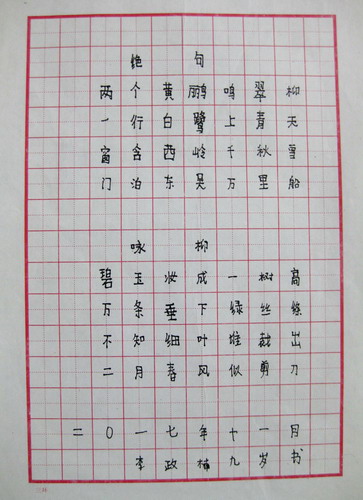 绝句
两个黄鹂鸣翠柳
一行白鹭上青天
窗含西岭千秋雪
门泊东吴万里船
咏柳
碧玉妆成一树高
万条垂下绿丝绦
不知细叶谁裁出
二月春风似剪刀
二〇一七年十一月
李政九岁书